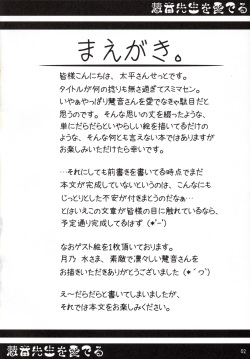 慧音先生を愛でる
まえがき。
皆様こんにちは、太平さんせっとです。
タイトルが何の捻りも無さ過ぎてスミマセン。
いやぁやっぱり慧音さんを愛でなきゃ駄目だと
思うのです。そんな思いの丈を綴ったような、
単にだらだらといやらしい絵を描いてるだけの
ような、そんな何とも言えない本ではありますが
お楽しみいただけたら幸いです。
…それにしても前書きを書いてる時点でまだ
本文が完成していないというのは、こんなにも
じっとりとした不安が付きまとうのだなぁ…
とはいえこの文章が皆様の目に触れているなら、
予定通り完成してるはず (*'-')
なおゲスト絵を1枚頂いております。
月乃 水さま、素敵で凛々しい慧音さんを
お描きいただきありがとうございました (*´ワ`)
え～だらだらと書いてしまいましたが、
それでは本文をお楽しみください。
慧音先生を愛でる
02